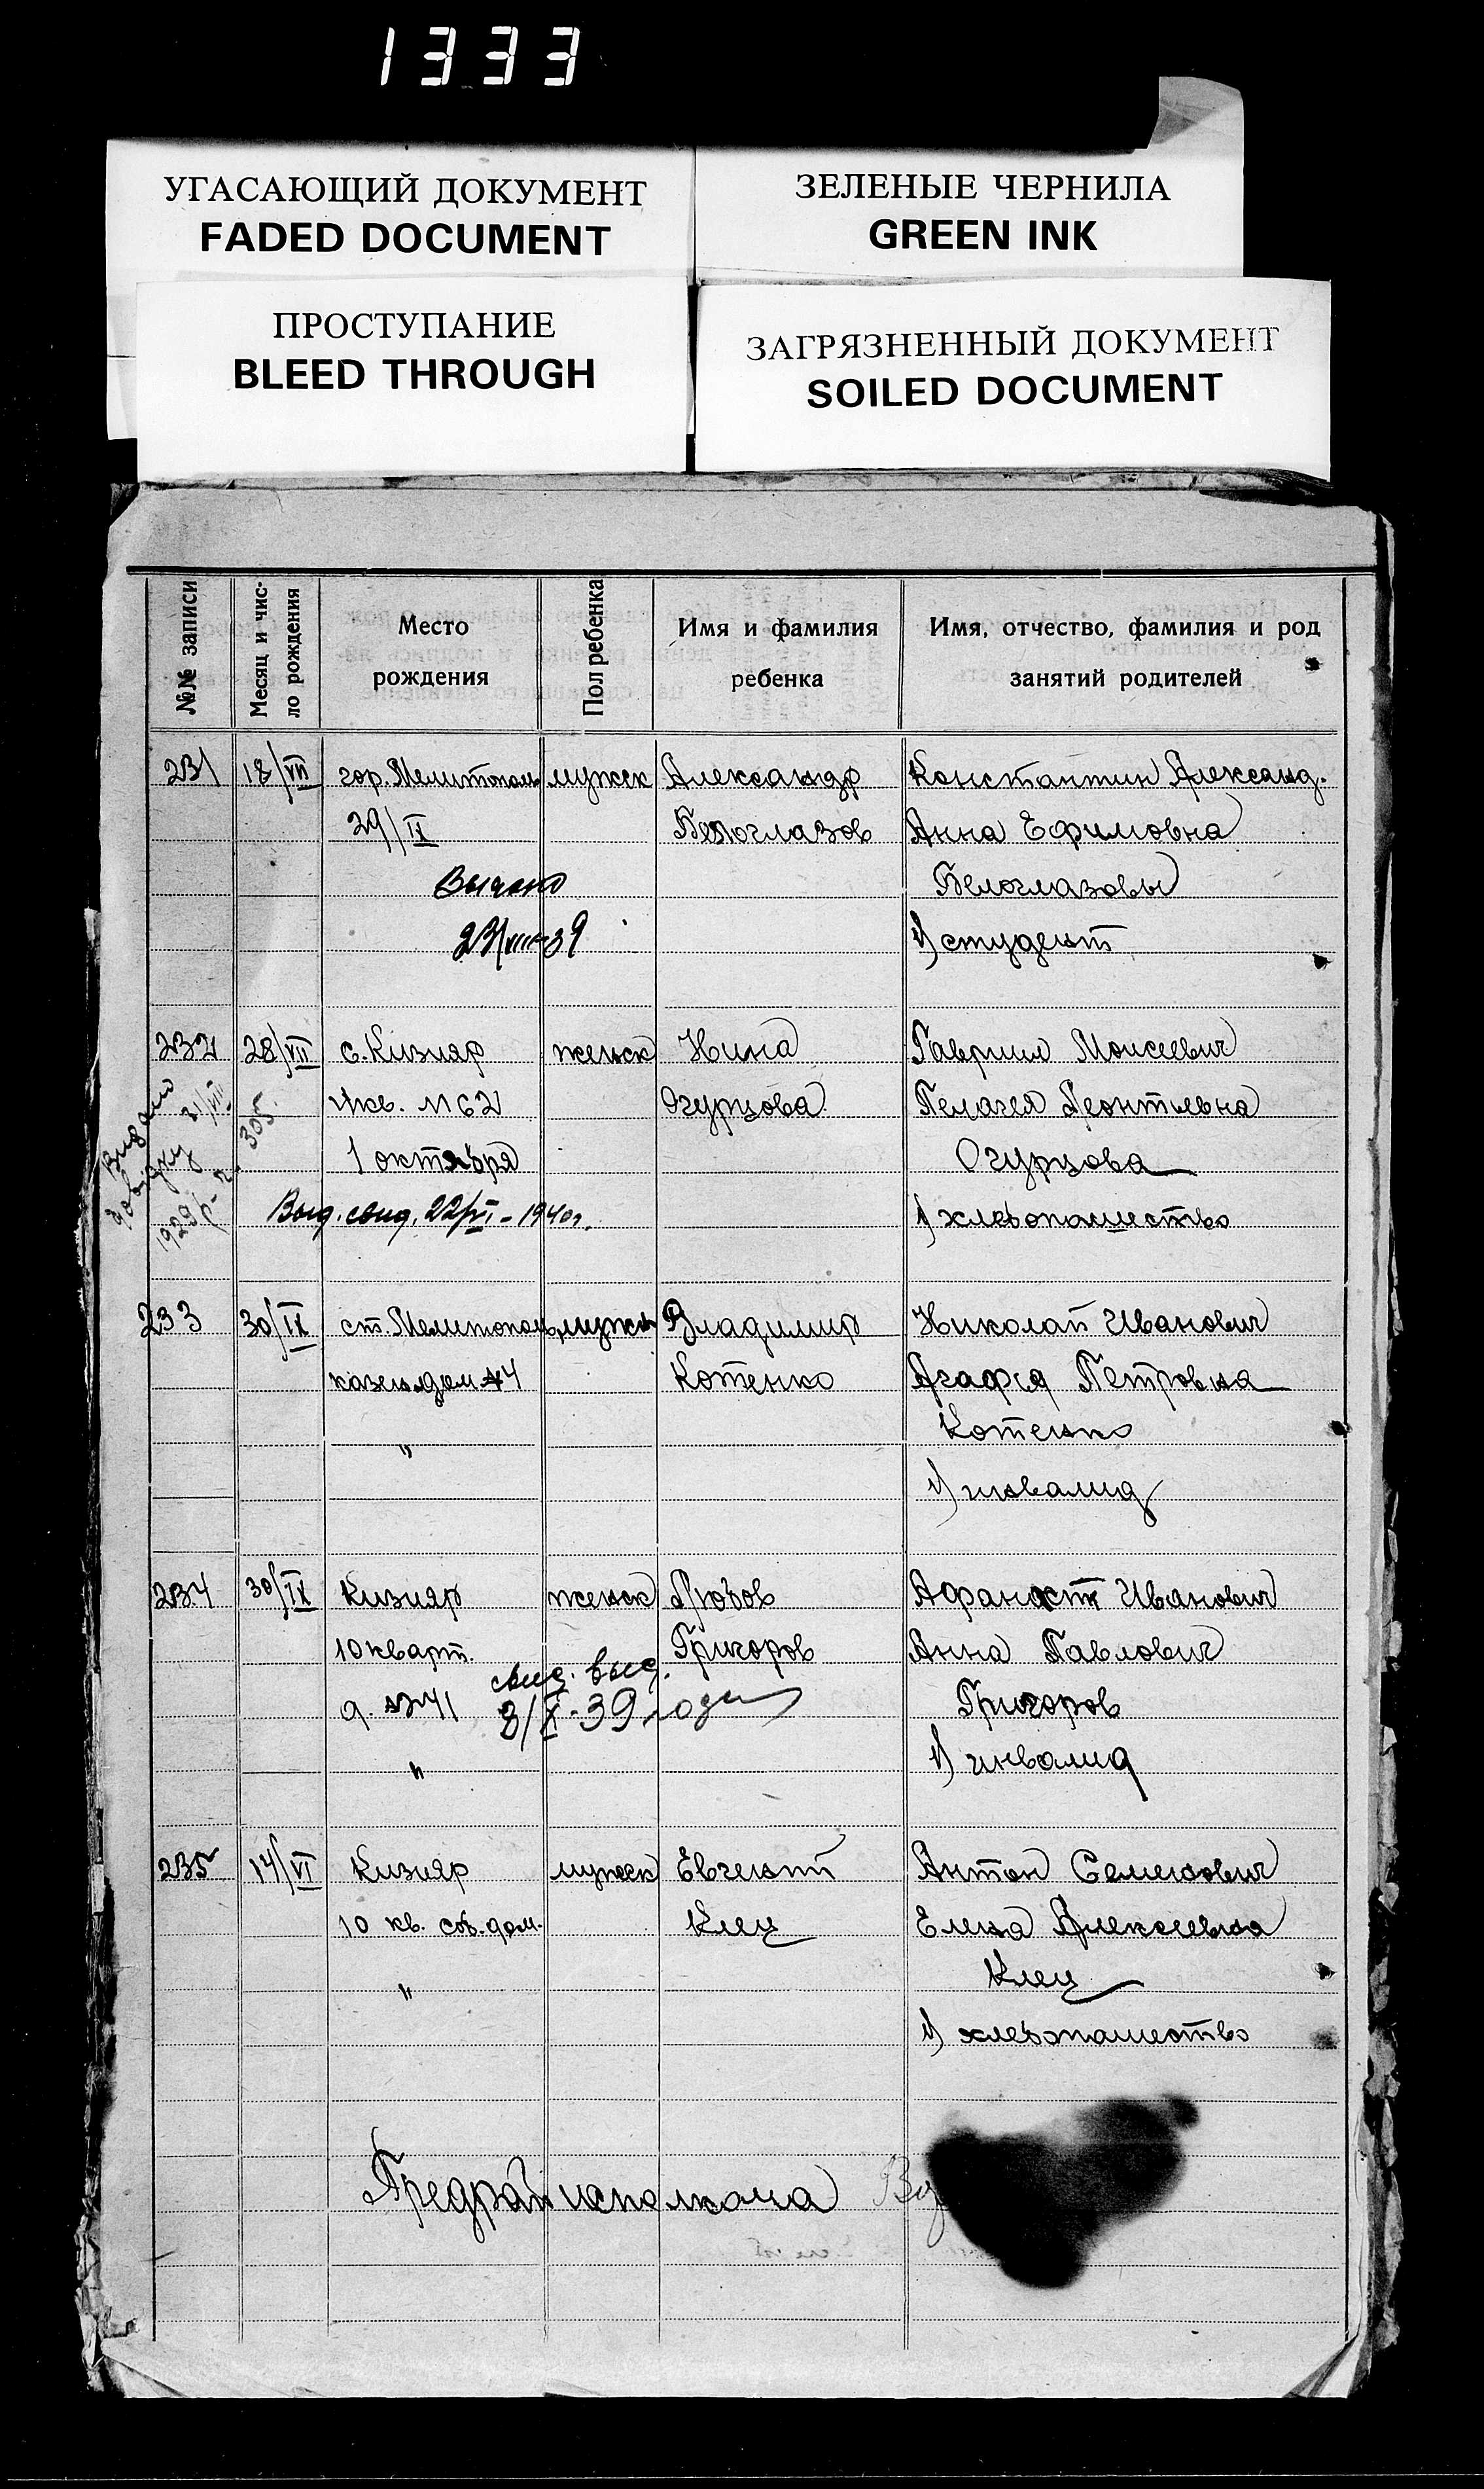 1333
УГАСАЮЩИЙ ДОКУМЕНТ
FADED DOCUMENT
ЗЕЛЕНЫЕ ЧЕРНИЛА
GREEN INK
ПРОСТУПАНИЕ
BLEED THROUGH
ЗАГРЯЗНЕННЫЙ ДОКУМЕНТ
SOILED DOCUMENT
№№ записи
Месяц и чис-
ло рождения
Место
рождения
Пол ребенка
Имя и фамилия
ребенка
Имя, отчество, фамилия и род
занятий родителей
231 18/VII гор. Мелитополь мужск Александр Константин Александ.
29/IX Белоглазов Анна Ефимовна
Белоглазовы
23/VIII-39 1) студент
232 28/VII с. Кизияр женск Нина Гавриил Моисеевич
кв. N62 Огурцова Пелагея Леонтьевна
1 октября Огурцова
Выд. свид. 22/VI - 1940г. 1) хлебопашество
Видано
довідку 31/VIII
1929 р. 305
233 30/IX ст. Мелитополь мужск Владимир Николай Иванович
казен. дом 44 Котенко Агафия Петровна
" Котенко
1) инвалид
234 30/IX Кизияр женск Любов Афанаси Иванович
10 кварт. Григоров Анна Павлович
свид. выд.
д. 41 3/X-39 года Григоров
" 1) инвалид
235 14/VI Кизияр мужск Евгений Антон Семенович
10 кв. соб. дом. Клец Елена Алексеевна
" Клец
1) хлебопашество
Предрайисполкома